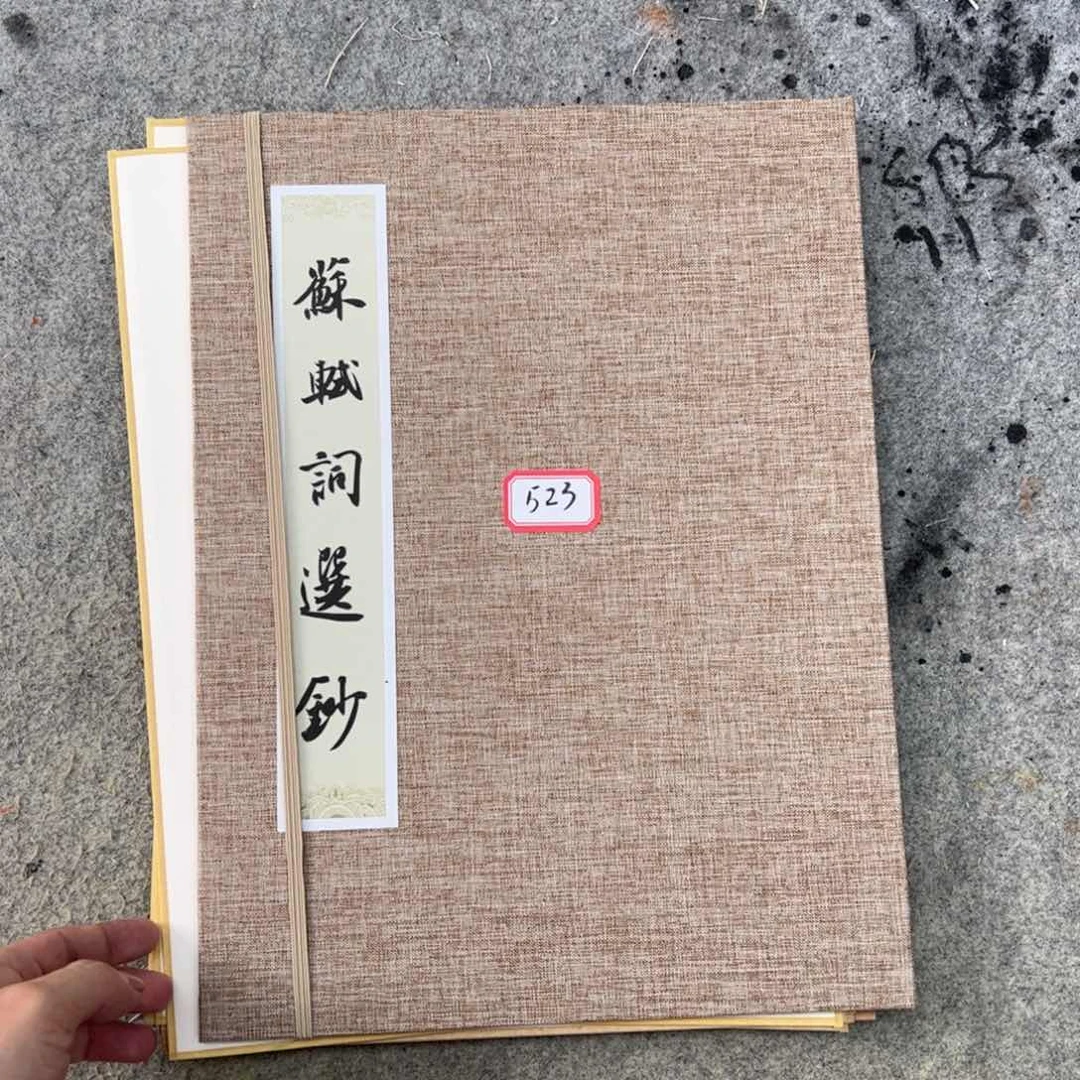 蘇賦詞選鈔
523